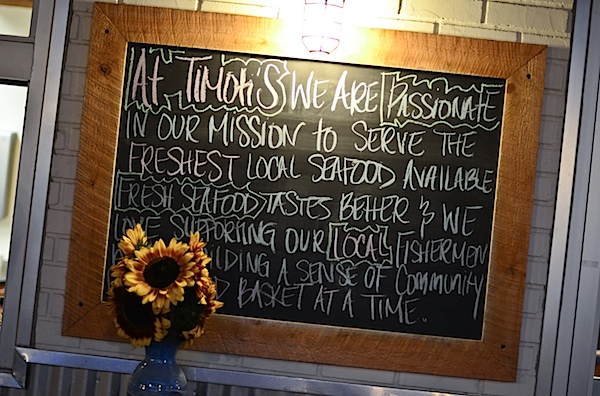 At TiMoti'S WE ARE PASSIONATE
IN OUR MISSION to SERVE THE
FRESHEST LOCAL SEAFOOD AVAILABLE
FRESH SEAFOOD TASTES BETTER & WE
LOVE SUPPORTING OUR LOCAL FISHERMEN
A SENSE OF Community
BASKET AT A TIME.